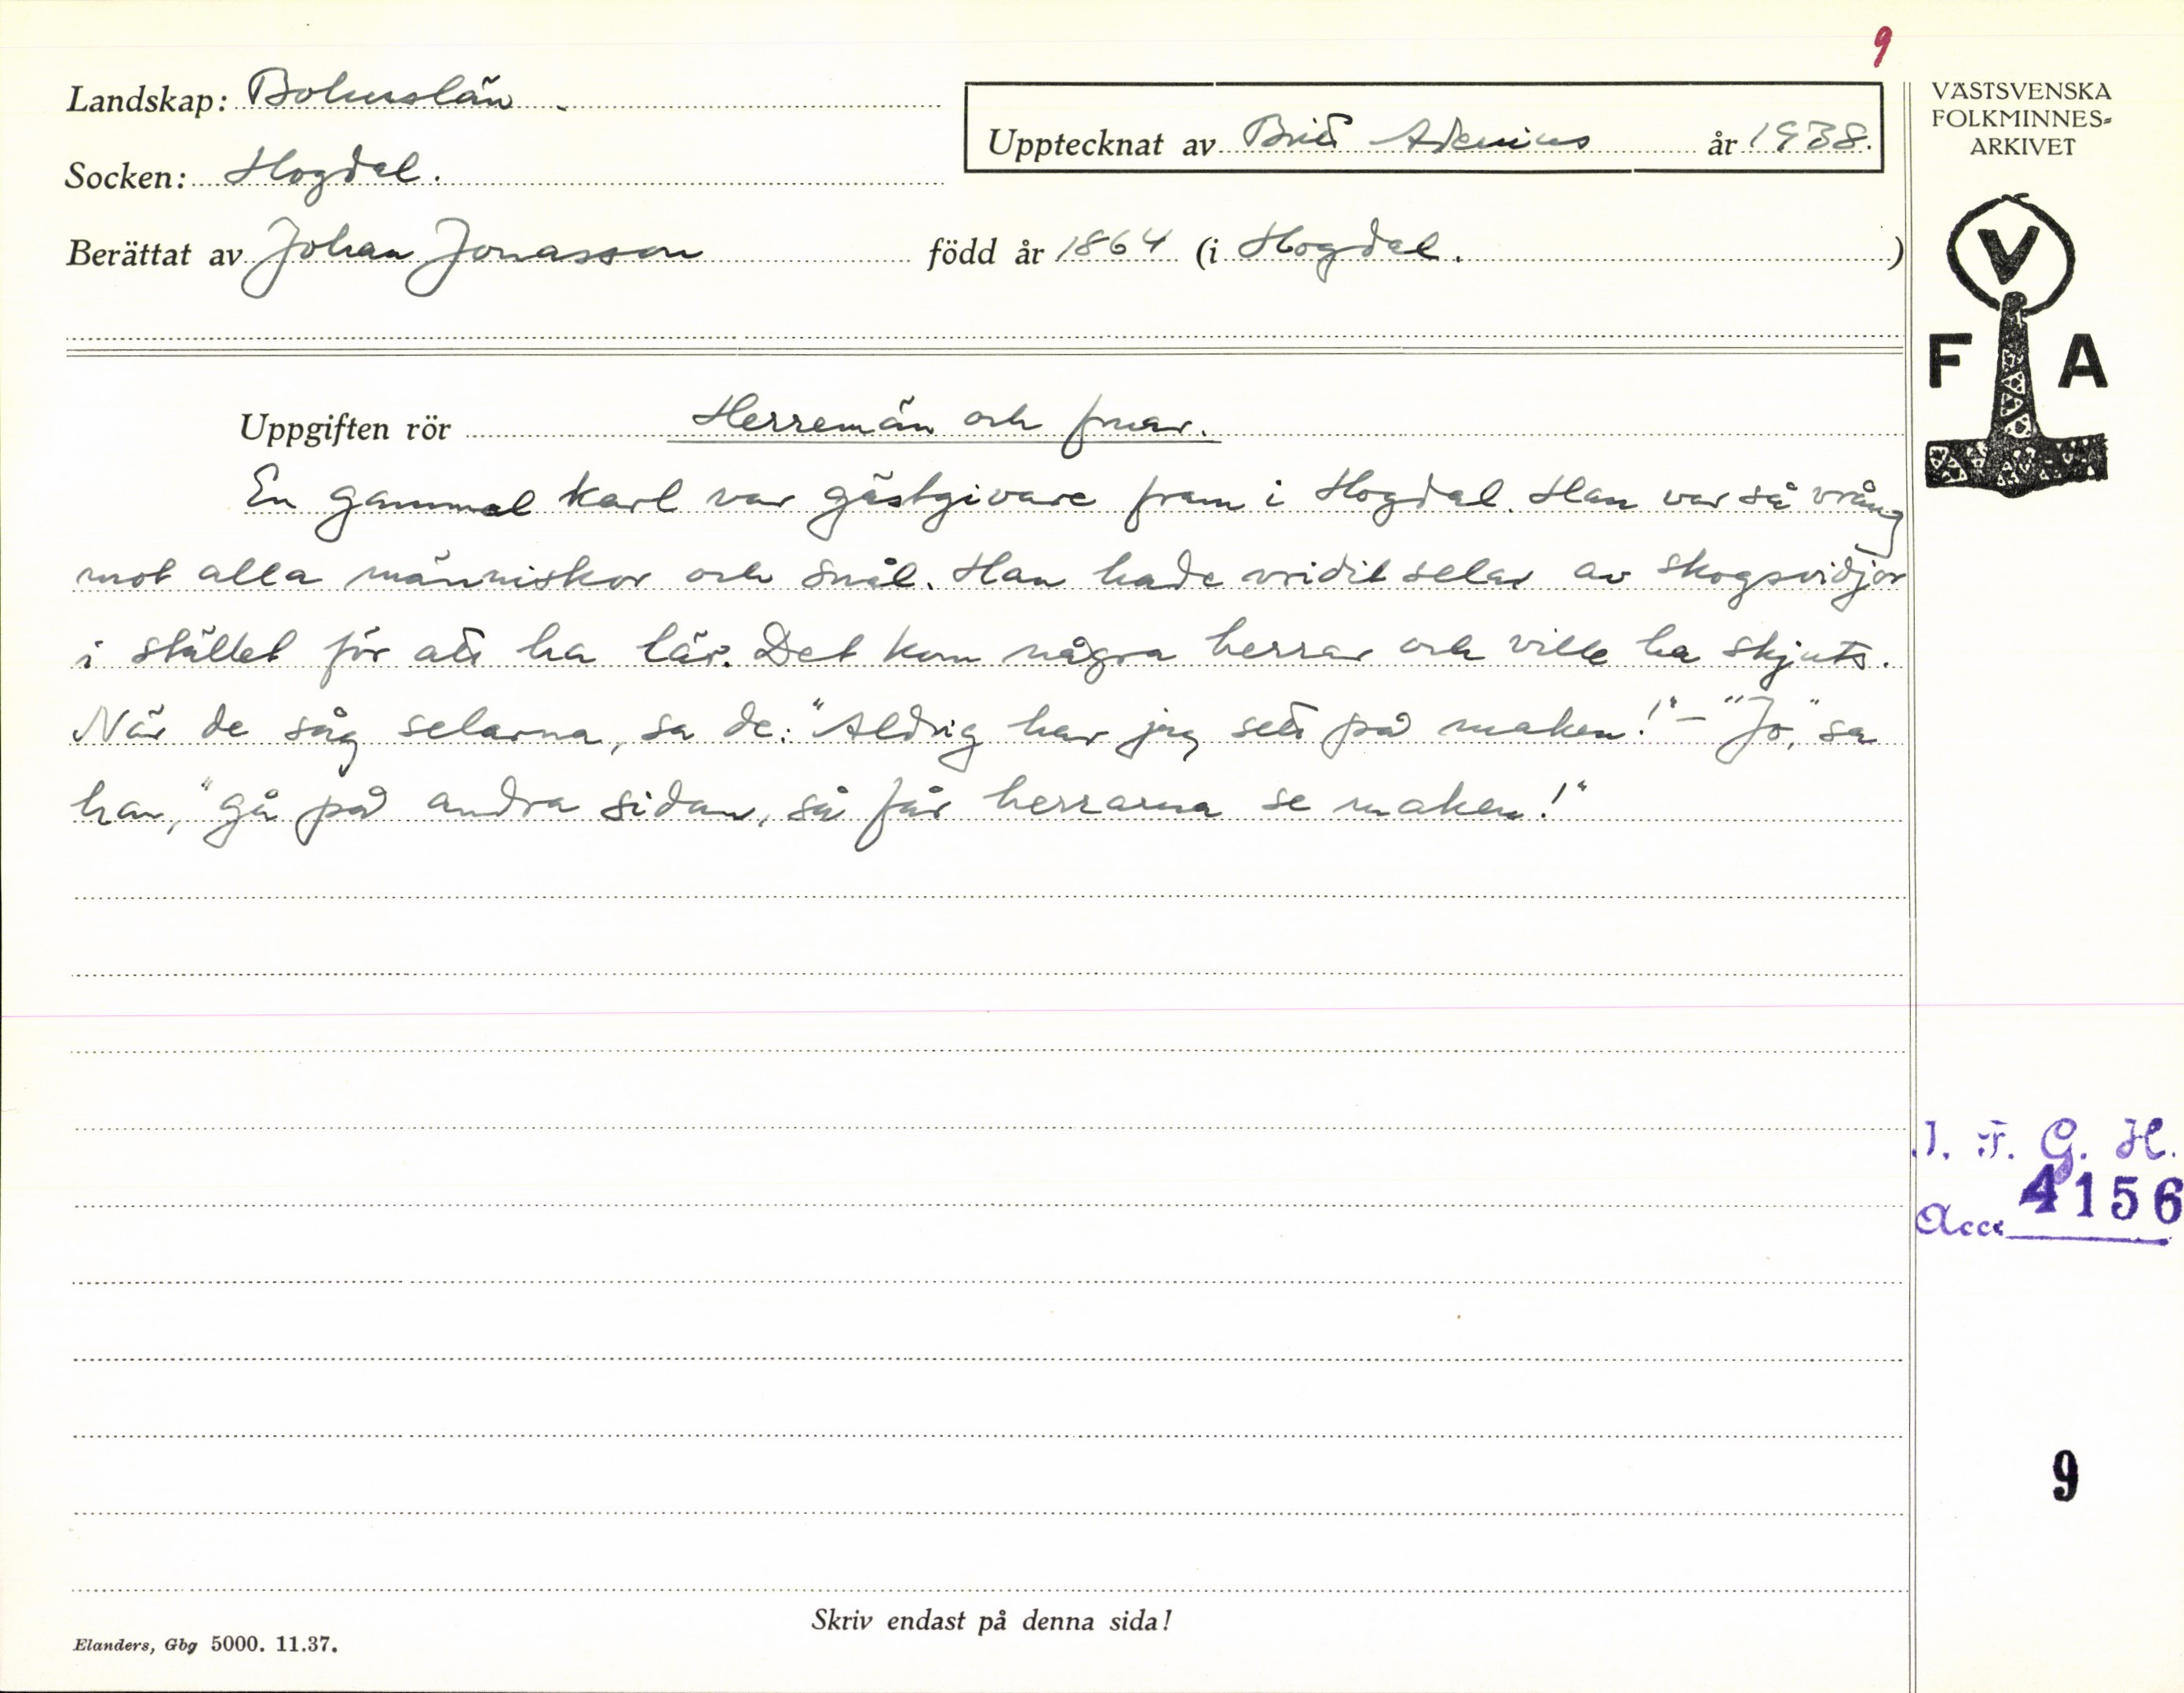 9
Landskap: Bohuslän.
Upptecknat av Brit Adenius år 1938.
Socken: Hogdal.
Berättat av Johan Jonasson född år 1864 (i Hogdal. )
Uppgiften rör Herremän och fruar.
En gammal karl var gästgivare fram i Hogdal. Han var så vrång
mot alla människor och snål. Han hade vridit selar av skogsvidjor
i stället för att ha lär. Det kom några herrar och ville ha skjuts.
När de såg selarna, sa de: "Aldrig har jag sett på maken!" – "Jo," sa
han, "gå på andra sidan, så får herrarna se maken!"
Skriv endast på denna sida!
Elanders, Gbg 5000. 11.37.
VÄSTSVENSKA
FOLKMINNES-
ARKIVET
V
F A
I. F. G. H.
Acc. 4156
9